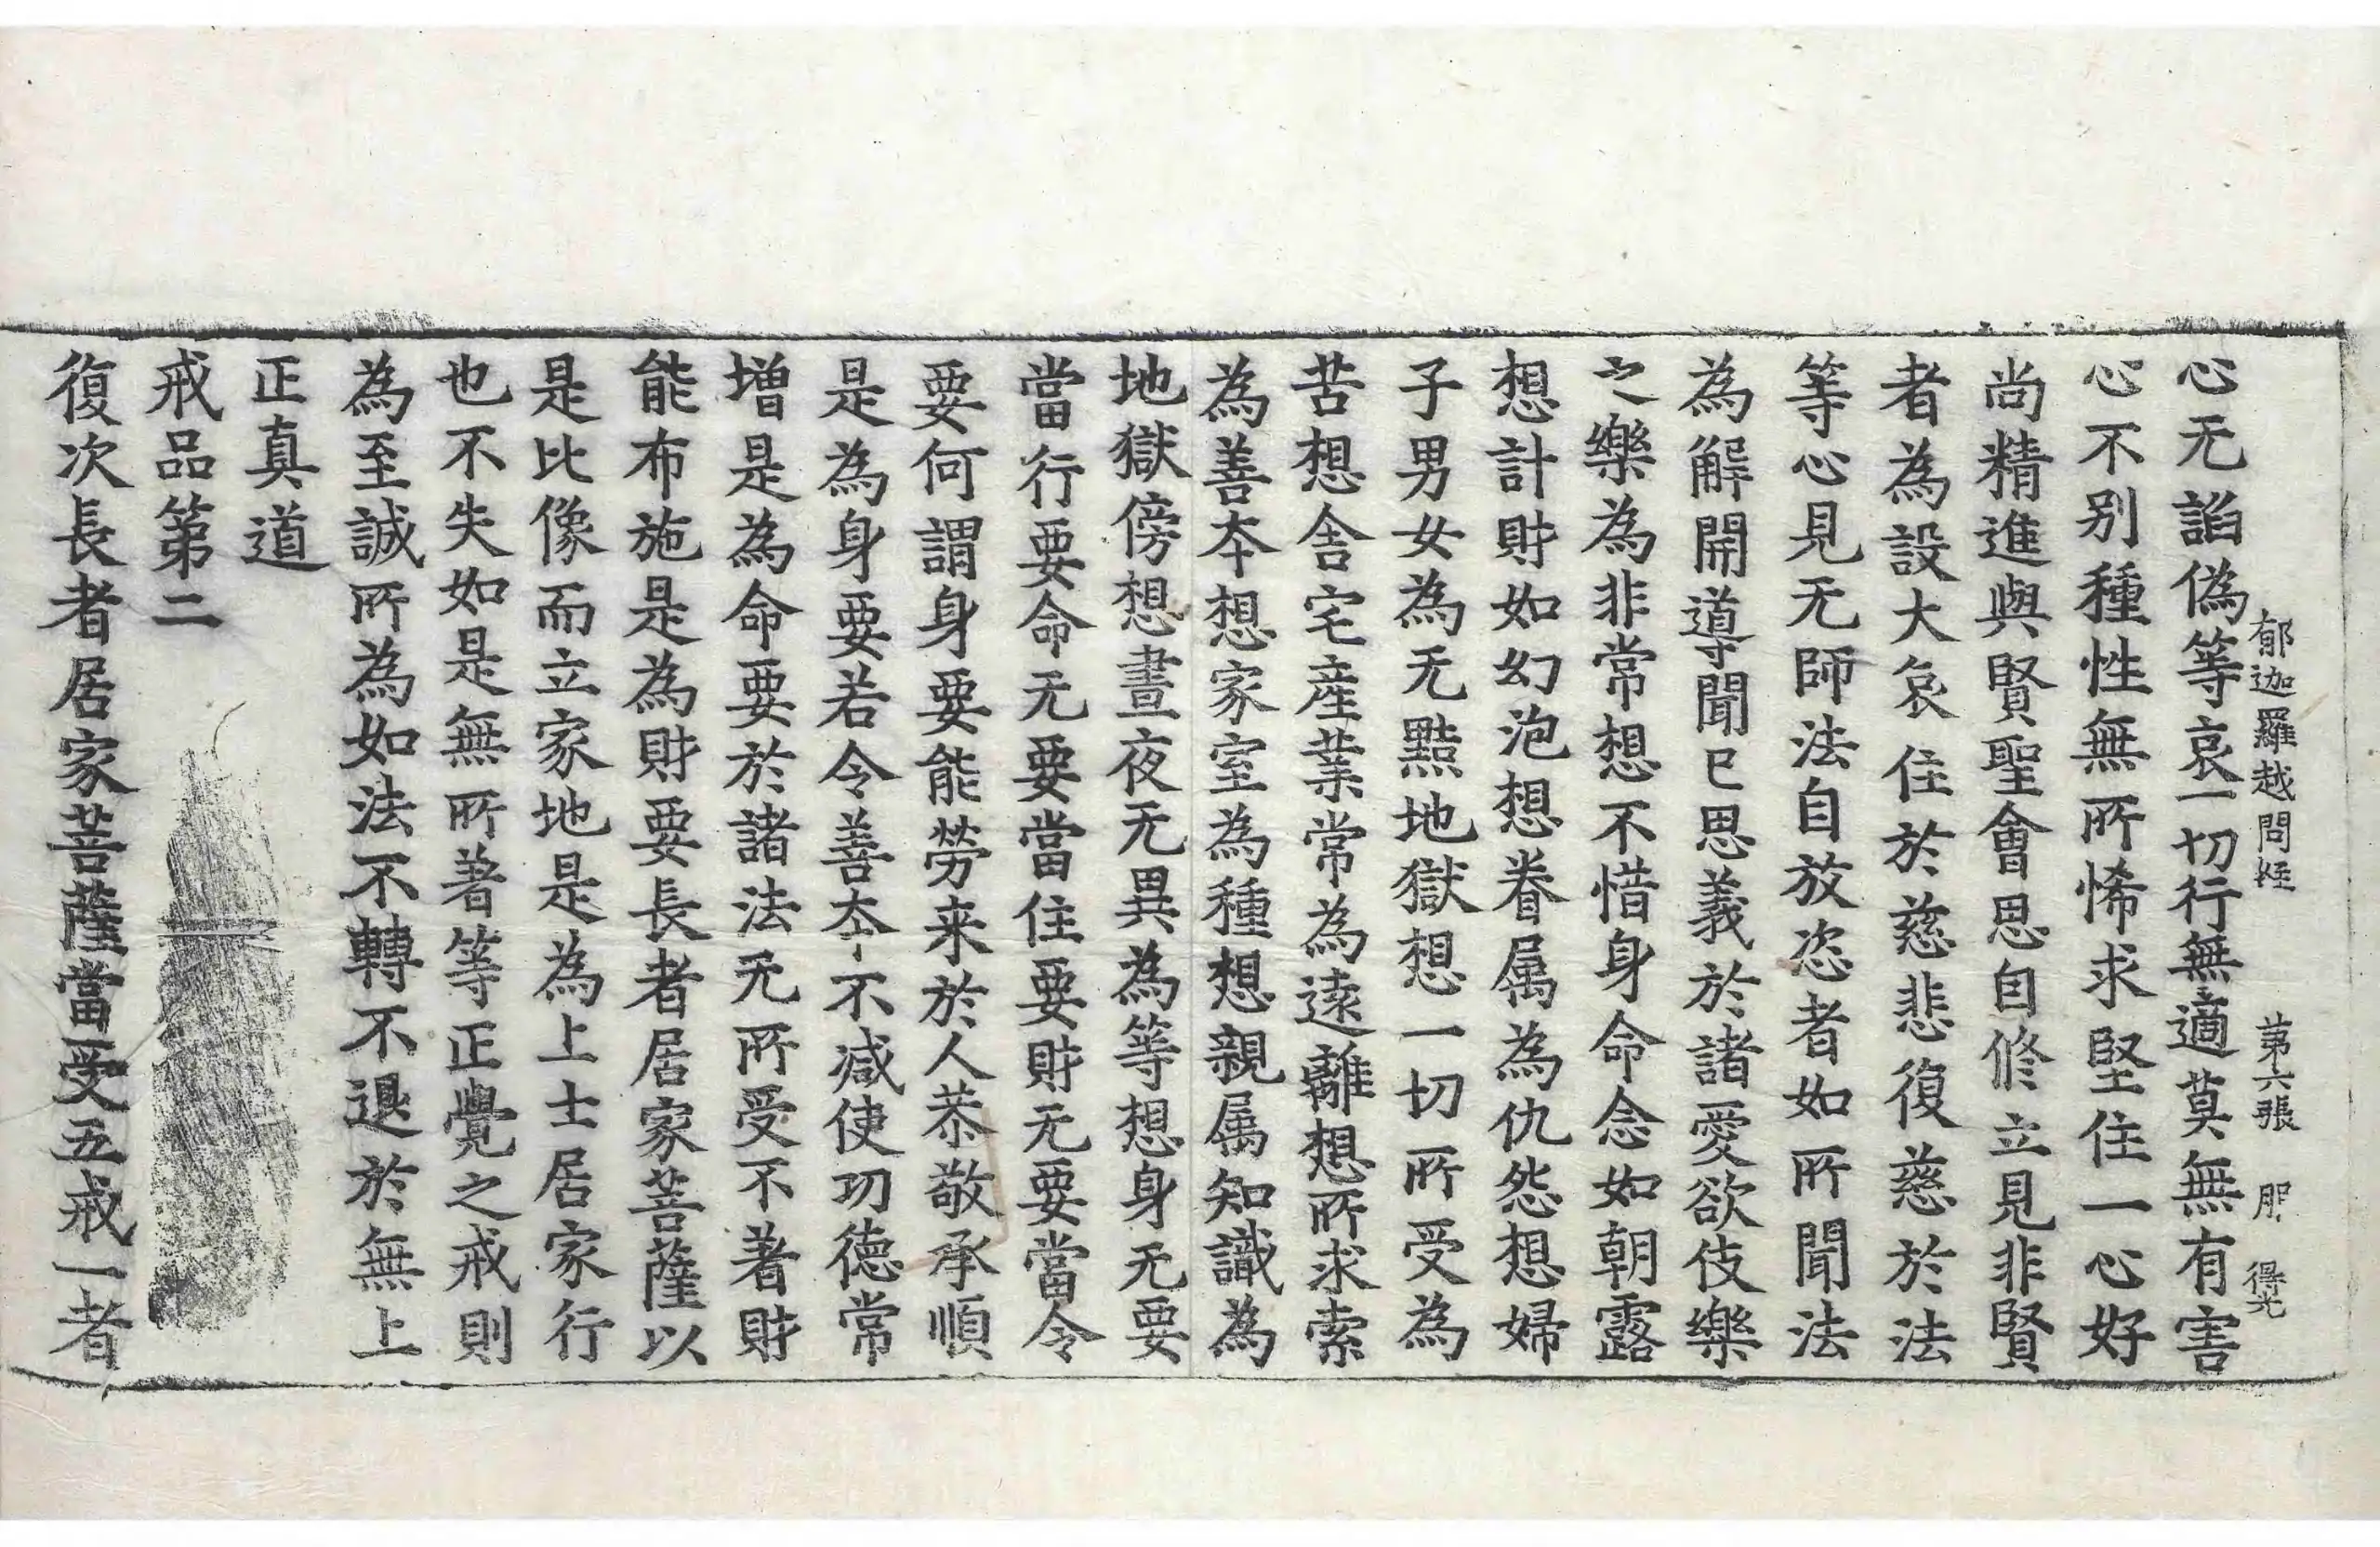 郁迦羅越問経　第六張　服　得光
心无諂偽等哀一切行無適莫無有害
心不别種性無所悕求堅住一心好
尚精進與賢聖會思自修立見非賢
者為設大哀住於慈悲復慈於法
等心見无師法自放恣者如所聞法
為解開導聞已思義於諸愛欲伎樂
之樂為非常想不惜身命念如朝露
想計財如幻泡想眷属為仇怨想婦
子男女為无黠地獄想一切所受為
苦想舍宅産業常為遠離想所求索
為善夲想家室為種想親属知識為
地獄傍想晝夜无異為等想身无要
當行要命无要當住要財无要當令
要何謂身要能勞来於人恭敬承順
是為身要若令善夲不減使功德常
增是為命要於諸法无所受不著財
能布施是為財要長者居家菩薩以
是比像而立家地是為上士居家行
也不失如是無所著等正覺之戒則
為至誠所為如法不轉不退於無上
正真道
戒品第二
復次長者居家菩薩當受五戒一者